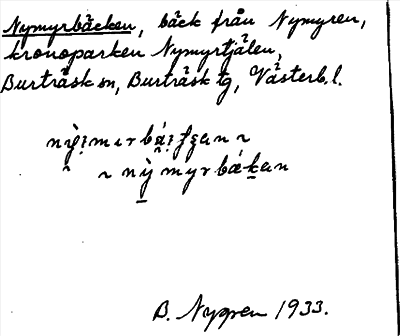 Nymyrbäcken, bäck från Nymyren,
kronoparken Nymyrtjälen,
Burträsk sn, Burträsk tg, Västerb. l.
B. Nygren 1933.